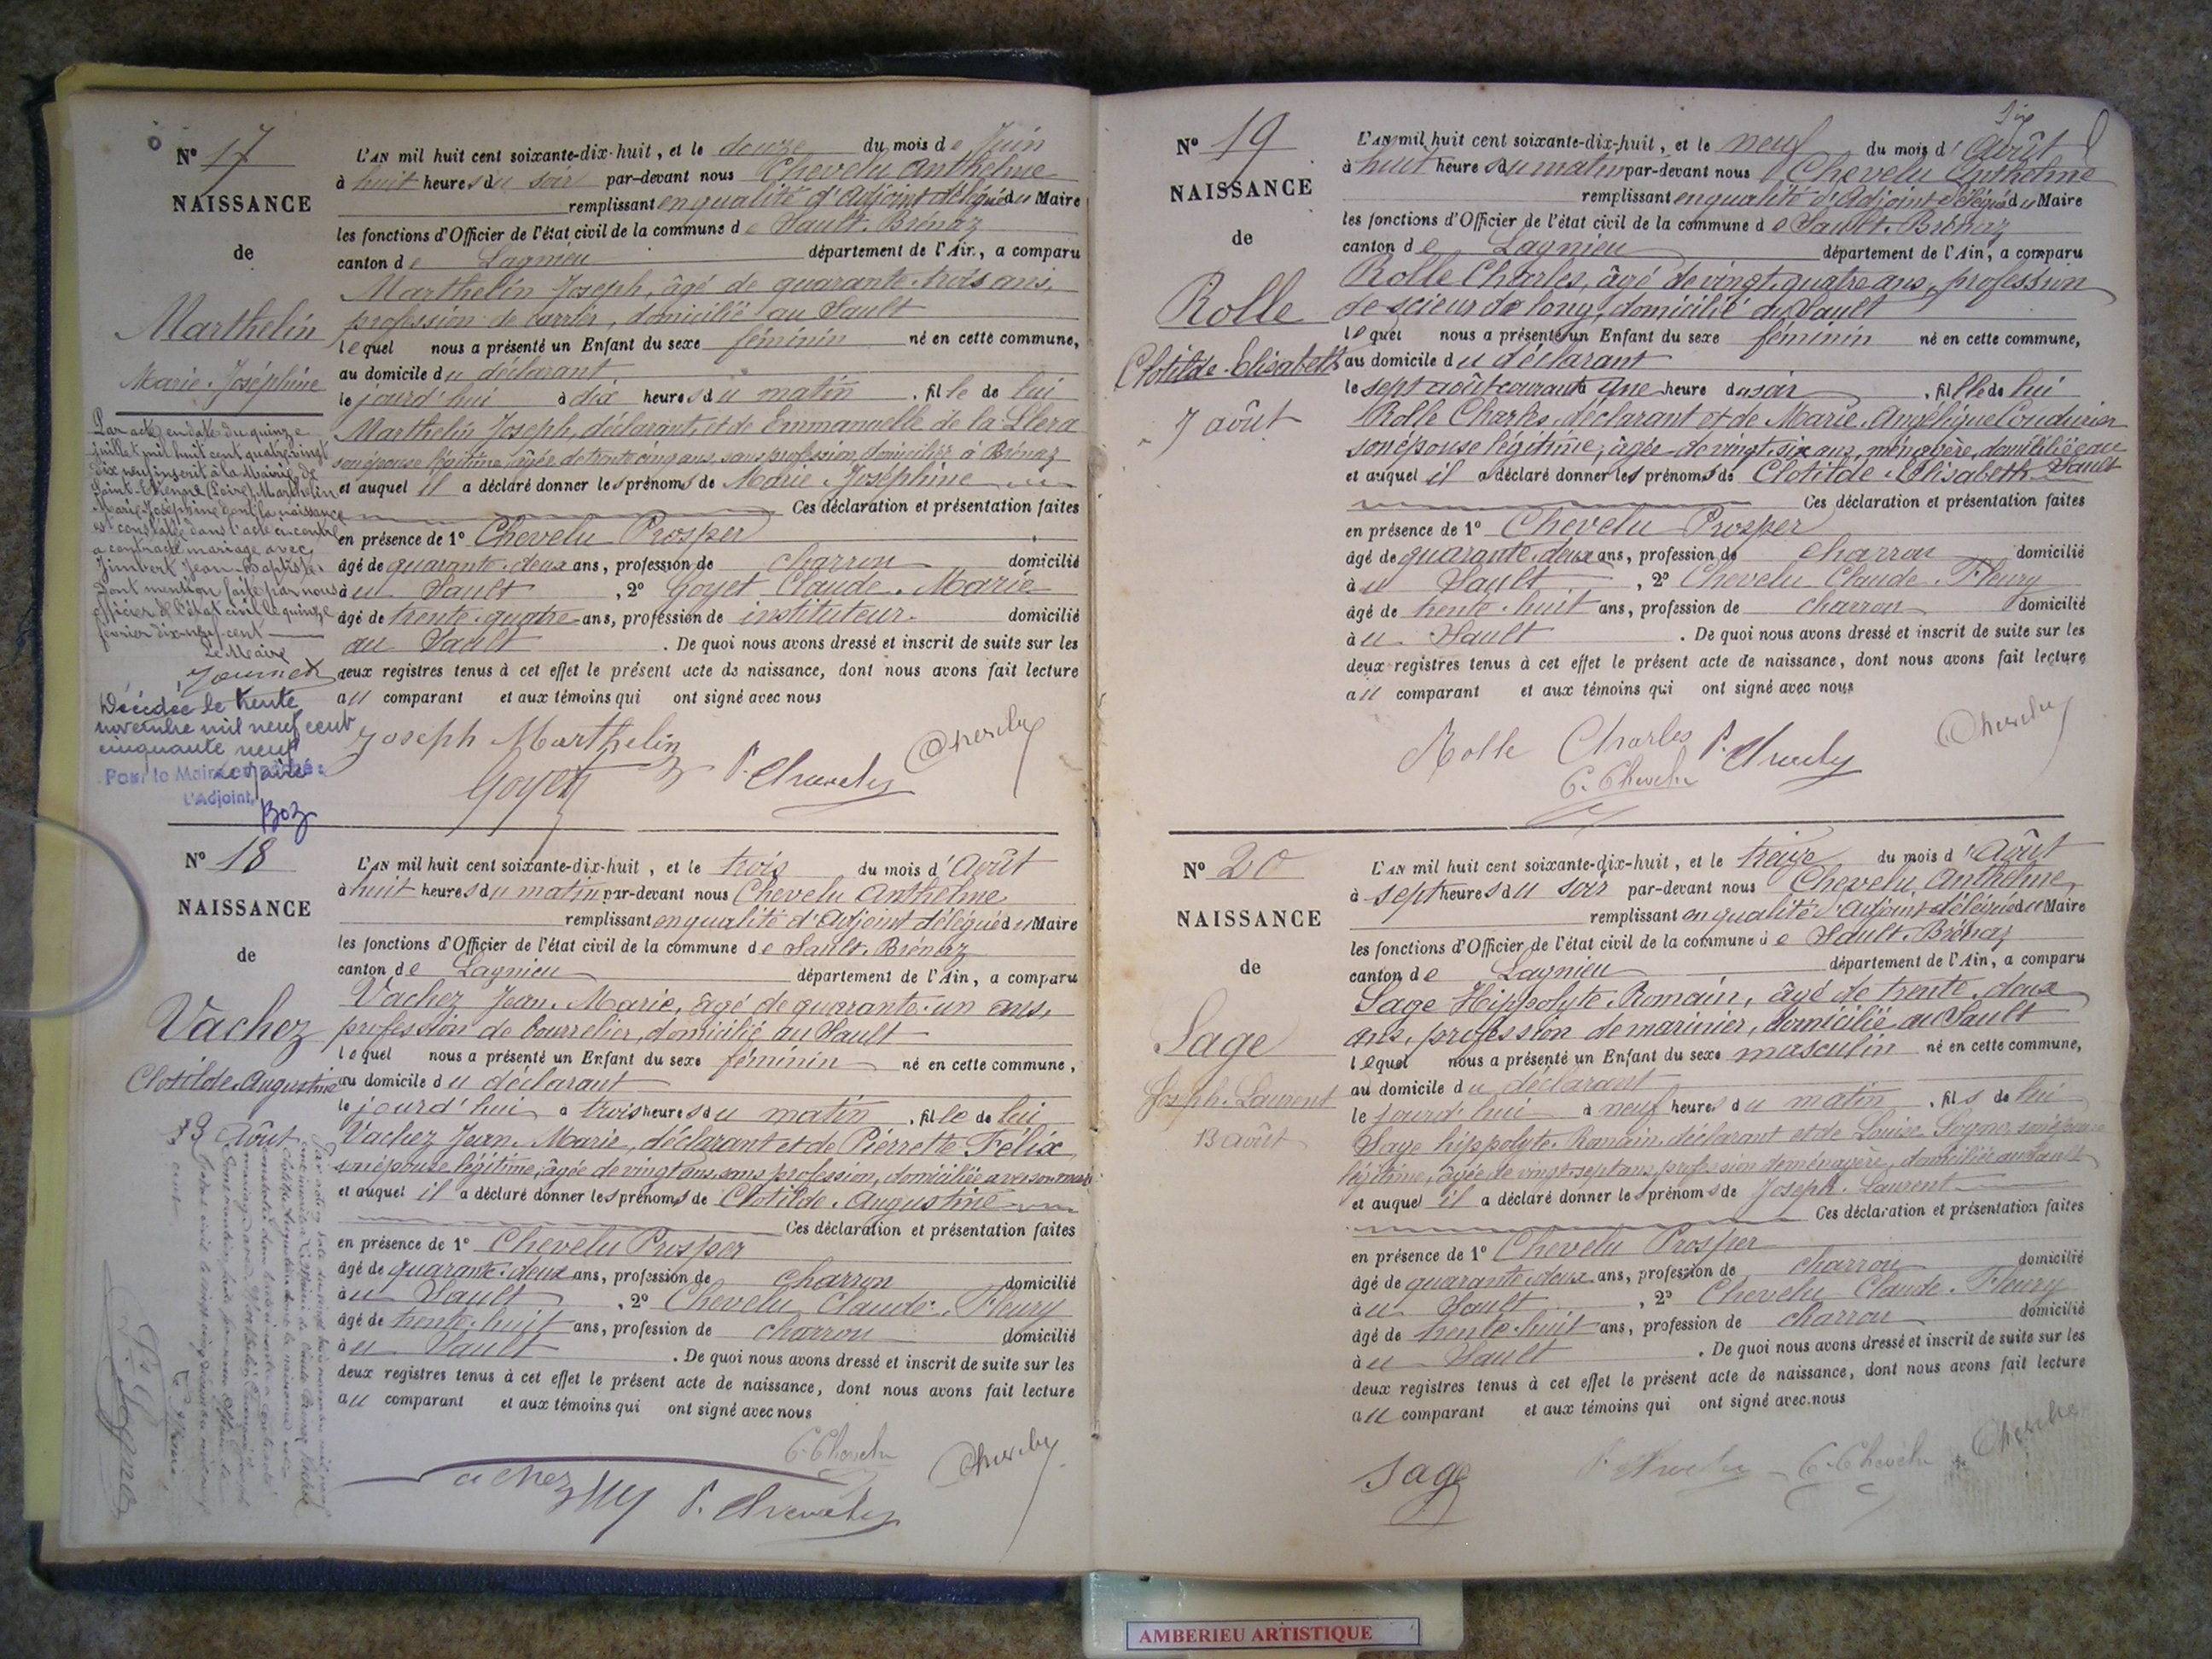 N° 17
NAISSANCE
de
Marthelin
Marie-Joséphine
Par acte en date du quinze
juillet mil huit cent quatre-vingt
dix neuf inscrit à la Mairie de
Saint-Etienne (Loire) Marthelin
Marie Joséphine dont la naissance
est constatée dans l'acte ci-contre
a contracté mariage avec
Jimbert Jean-Baptiste.
Dont mention faite par nous
officier de l'état civil le quinze
février dix-neuf-cent
Le Maire
Décédée le trente
novembre mil neuf cent
cinquante neuf
Pour le Maire
L'Adjoint,
Boz
L'AN mil huit cent soixante-dix-huit, et le douze du mois de Juin
à huit heures du soir par-devant nous Chevelu Anthelme
remplissant en qualité d'Adjoint délégué du Maire
les fonctions d'Officier de l'état civil de la commune de Sault-Brénaz
canton de Lagnieu département de l'Ain, a comparu
Marthelin Joseph, âgé de quarante-trois ans,
profession de carrier, domicilié au Sault
lequel nous a présenté un Enfant du sexe féminin né en cette commune,
au domicile du déclarant
le jourd'hui à dix heures du matin, fille de lui
Marthelin Joseph, déclarant, et de Emmanuelle de la Llera
son épouse légitime, âgée de trente cinq ans, sans profession, domiciliée à Brénaz
et auquel il a déclaré donner les prénoms de Marie-Joséphine
Ces déclaration et présentation faites
en présence de 1° Chevelu Prosper
âgé de quarante-deux ans, profession de charron domicilié
au Sault, 2° Goyet Claude-Marie
âgé de trente-quatre ans, profession de instituteur domicilié
au Sault. De quoi nous avons dressé et inscrit de suite sur les
deux registres tenus à cet effet le présent acte de naissance, dont nous avons fait lecture
au comparant et aux témoins qui ont signé avec nous
Joseph Marthelin
Goyet P. Chevelu Chevelu
N° 18
NAISSANCE
de
Vachez
Clotilde-Augustine
3 Août
L'AN mil huit cent soixante-dix-huit, et le trois du mois d'Août
à huit heures du matin par-devant nous Chevelu Anthelme
remplissant en qualité d'Adjoint délégué du Maire
les fonctions d'Officier de l'état civil de la commune de Sault-Brénaz
canton de Lagnieu département de l'Ain, a comparu
Vachez Jean-Marie, âgé de quarante-un ans,
profession de bourrelier, domicilié au Sault
lequel nous a présenté un Enfant du sexe féminin né en cette commune,
au domicile du déclarant
le jourd'hui à trois heures du matin, fille de lui
Vachez Jean-Marie, déclarant et de Pierrette Félix
son épouse légitime, âgée de vingt ans, sans profession, domiciliée avec son mari
et auquel il a déclaré donner les prénoms de Clotilde-Augustine
Ces déclaration et présentation faites
en présence de 1° Chevelu Prosper
âgé de quarante-deux ans, profession de charron domicilié
au Sault, 2° Chevelu Claude-Fleury
âgé de trente-huit ans, profession de charron domicilié
au Sault. De quoi nous avons dressé et inscrit de suite sur les
deux registres tenus à cet effet le présent acte de naissance, dont nous avons fait lecture
au comparant et aux témoins qui ont signé avec nous
C. Chevelu Chevelu
Vachez P. Chevelu
N° 19
NAISSANCE
de
Rolle
Clotilde-Elisabeth
7 août
Six
L'AN mil huit cent soixante-dix-huit, et le neuf du mois d'Août
à huit heures du matin par-devant nous Chevelu Anthelme
remplissant en qualité d'Adjoint délégué du Maire
les fonctions d'Officier de l'état civil de la commune de Sault-Brénaz
canton de Lagnieu département de l'Ain, a comparu
Rolle Charles, âgé de vingt-quatre ans, profession
de scieur de long, domicilié au Sault
lequel nous a présenté un Enfant du sexe féminin né en cette commune,
au domicile du déclarant
le sept août courant à une heure du soir, fille de lui
Rolle Charles, déclarant et de Marie-Angélique Coudurier
son épouse légitime, âgée de vingt-six ans, ménagère, domiciliée au
et auquel il a déclaré donner les prénoms de Clotilde-Elisabeth Sault
Ces déclaration et présentation faites
en présence de 1° Chevelu Prosper
âgé de quarante-deux ans, profession de charron domicilié
au Sault, 2° Chevelu Claude-Fleury
âgé de trente-huit ans, profession de charron domicilié
au Sault. De quoi nous avons dressé et inscrit de suite sur les
deux registres tenus à cet effet le présent acte de naissance, dont nous avons fait lecture
au comparant et aux témoins qui ont signé avec nous
Rolle Charles P. Chevelu Chevelu
C. Chevelu
N° 20
NAISSANCE
de
Sage
Joseph-Laurent
13 août
L'AN mil huit cent soixante-dix-huit, et le treize du mois d'Août
à sept heures du soir par-devant nous Chevelu Anthelme
remplissant en qualité d'Adjoint délégué du Maire
les fonctions d'Officier de l'état civil de la commune de Sault-Brénaz
canton de Lagnieu département de l'Ain, a comparu
Sage Hippolyte-Romain, âgé de trente-deux
ans, profession de marinier, domicilié au Sault
lequel nous a présenté un Enfant du sexe masculin né en cette commune,
au domicile du déclarant
le jourd'hui à neuf heures du matin, fils de lui
Sage hippolyte-Romain, déclarant et de Louise son épouse
légitime, âgée de vingt-sept ans, profession de ménagère, domiciliée au Sault
et auquel il a déclaré donner les prénoms de Joseph-Laurent
Ces déclaration et présentation faites
en présence de 1° Chevelu Prosper
âgé de quarante-deux ans, profession de charron domicilié
au Sault, 2° Chevelu Claude-Fleury
âgé de trente-huit ans, profession de charron domicilié
au Sault. De quoi nous avons dressé et inscrit de suite sur les
deux registres tenus à cet effet le présent acte de naissance, dont nous avons fait lecture
au comparant et aux témoins qui ont signé avec nous
Sage P. Chevelu C. Chevelu Chevelu
AMBERIEU ARTISTIQUE